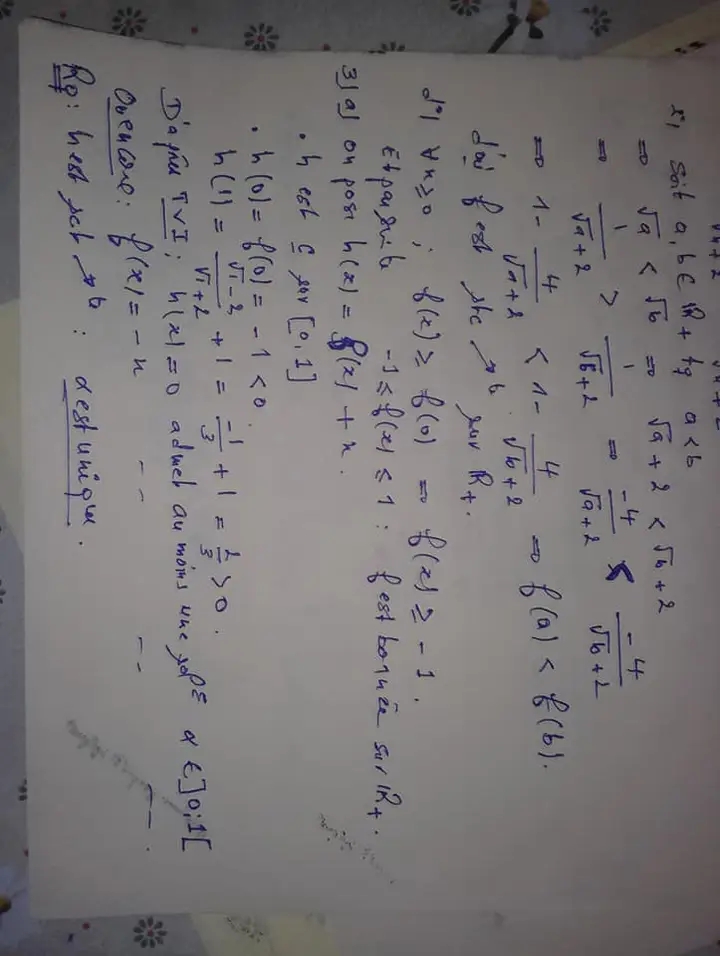 √a+2 √b+2
c) Soit a, b ∈ ℝ+ tq a<b
⇒ √a < √b ⇒ √a+2 < √b+2
⇒ 1/(√a+2) > 1/(√b+2) ⇒ -4/(√a+2) < -4/(√b+2)
⇒ 1 - 4/(√a+2) < 1 - 4/(√b+2) ⇒ f(a) < f(b).
d'où f est stc ↗ sur ℝ+.
d) ∀x≥0 ; f(x) ≥ f(0) ⇒ f(x) ≥ -1.
Et par suite -1 ≤ f(x) ≤ 1 : f est bornée sur ℝ+.
3) a) on pose h(x) = f(x) + x.
• h est C sur [0,1]
• h(0) = f(0) = -1 < 0
h(1) = (√1-2)/(√1+2) + 1 = -1/3 + 1 = 2/3 > 0.
D'après TVI ; h(x)=0 admet au moins une α ∈ ]0;1[
Ou encore : f(x) = -x -- -- --.
Rq : h est sct ↗ : α est unique.